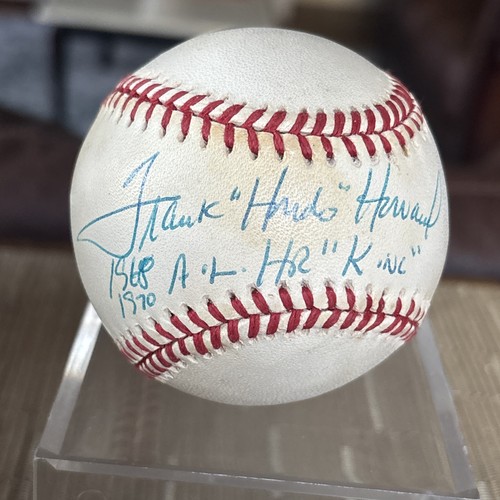 Frank "Hondo" Howard
1968 A.L. HR "King"
1970